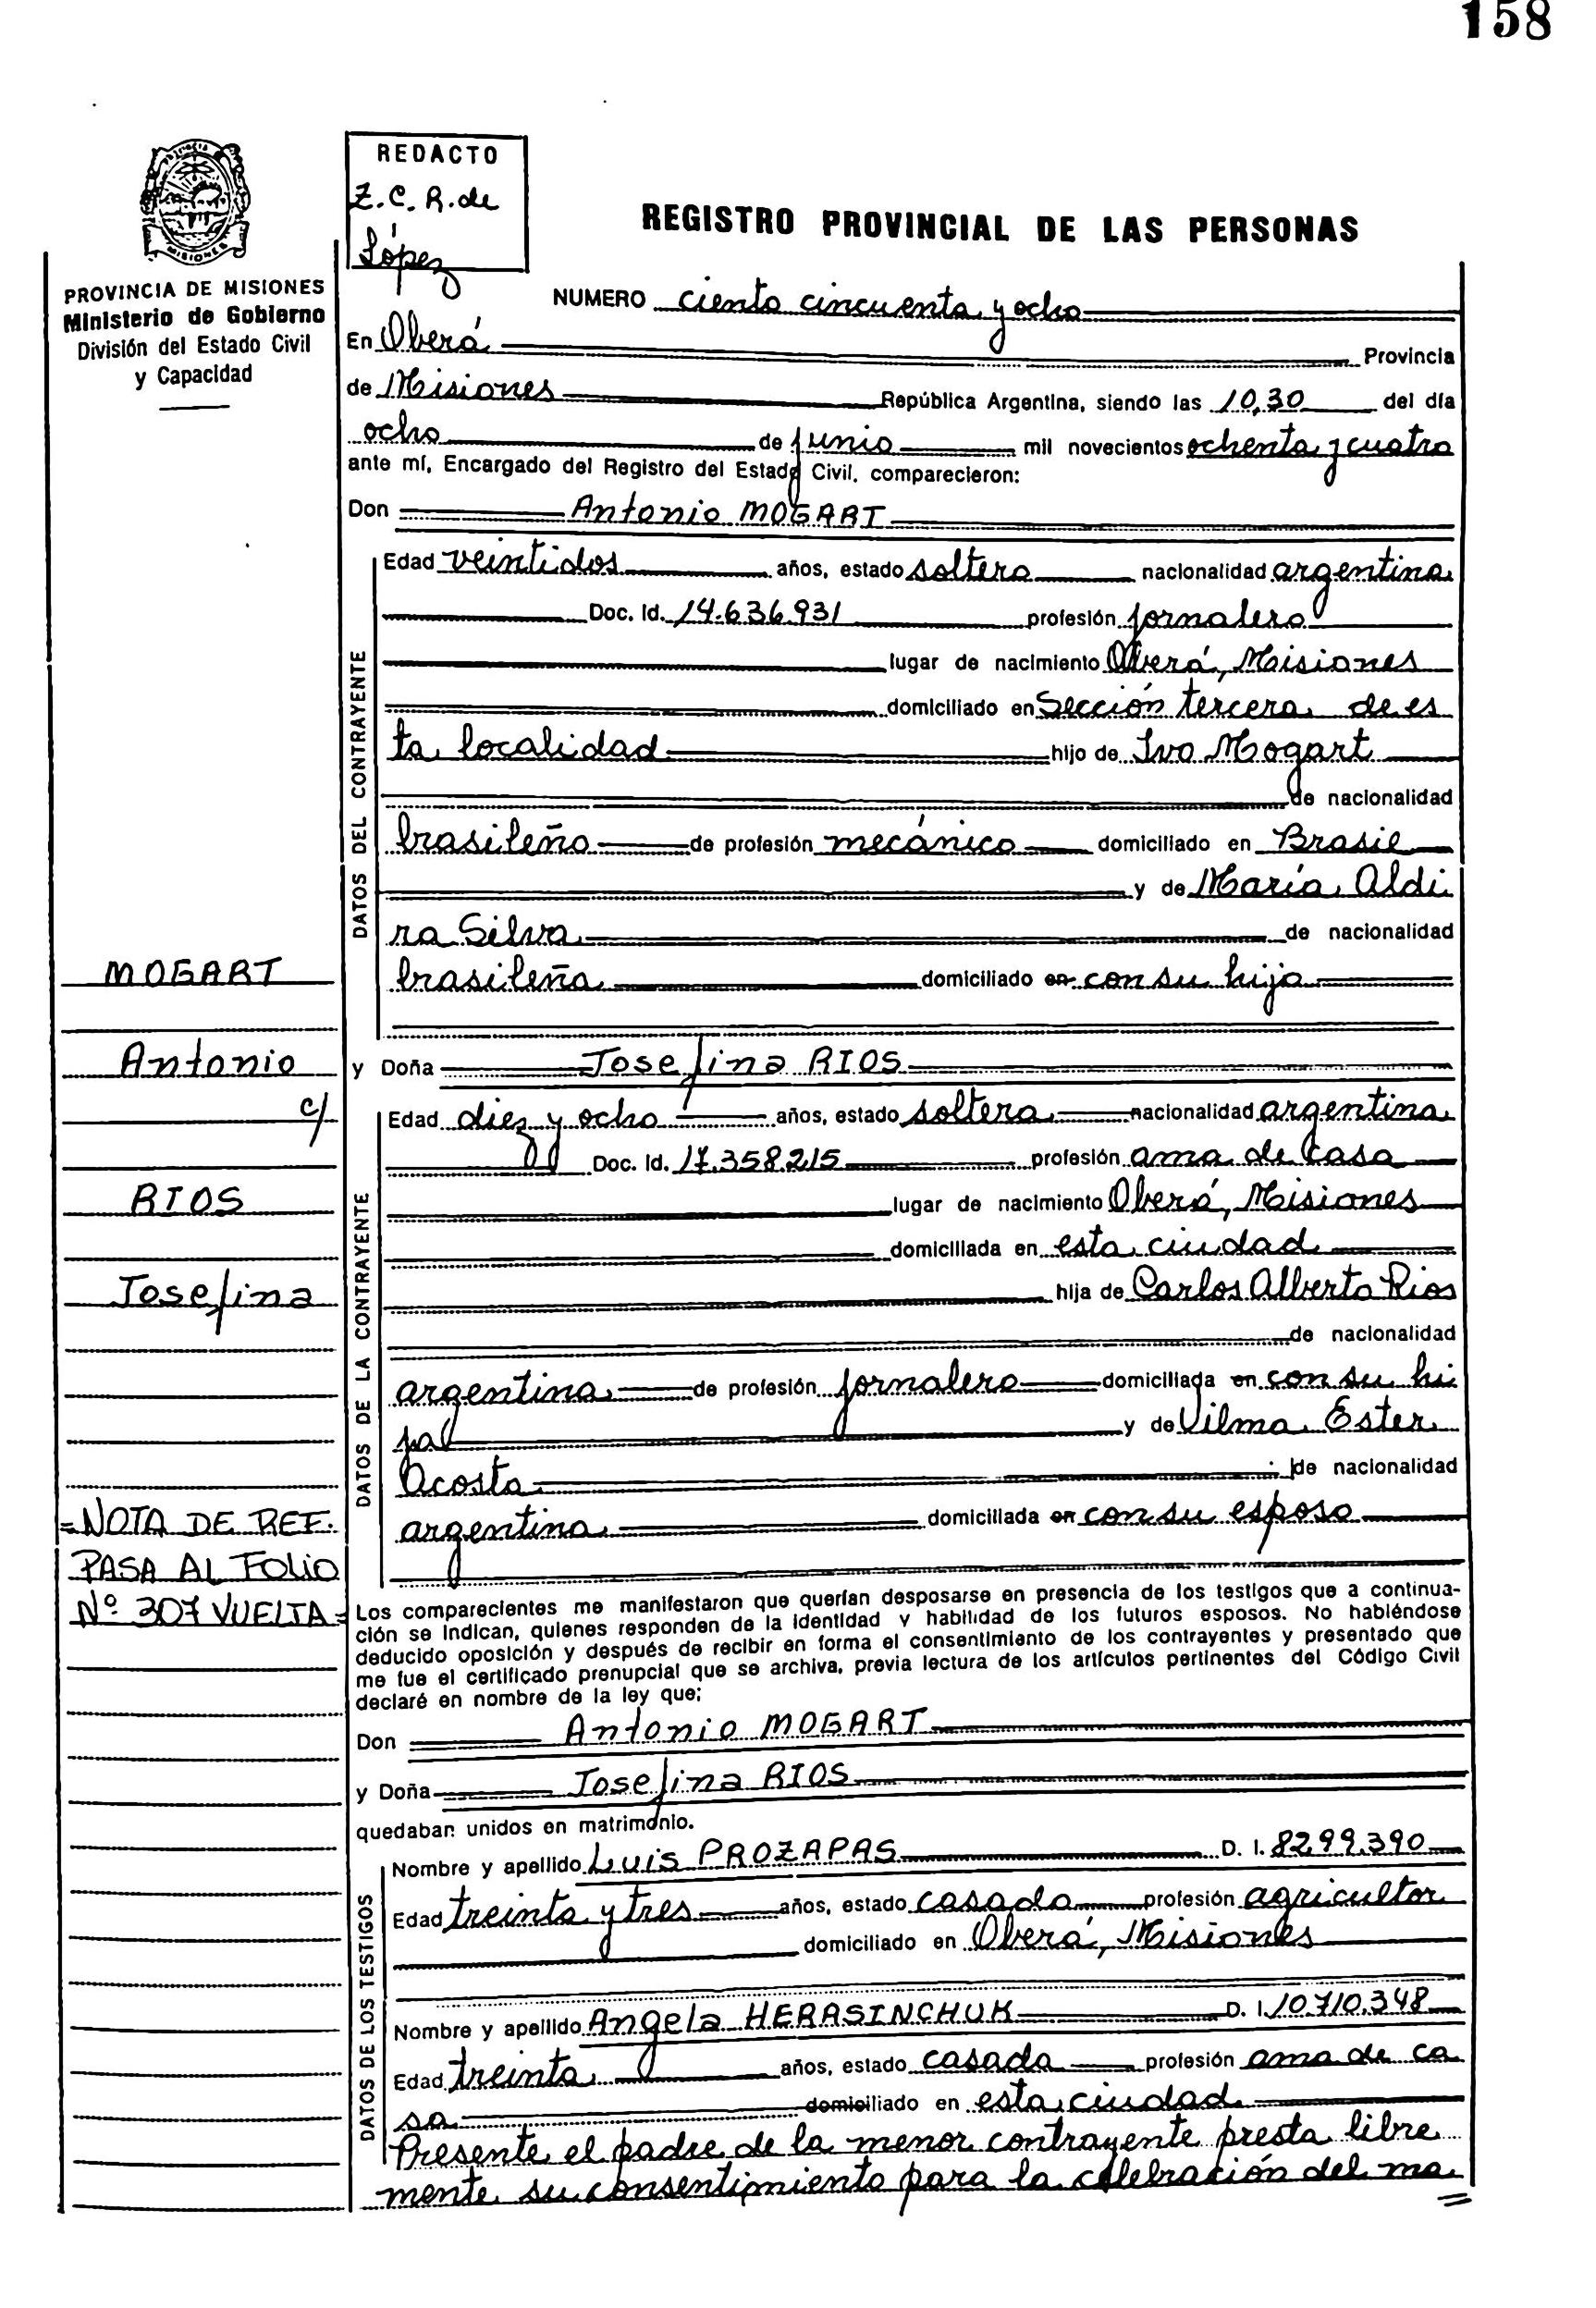 158
REDACTO
Z. C. R. de
López
REGISTRO PROVINCIAL DE LAS PERSONAS
MISIONES
PROVINCIA DE MISIONES
Ministerio de Gobierno
División del Estado Civil
y Capacidad
NUMERO ciento cincuenta y ocho
En Oberá Provincia
de Misiones República Argentina, siendo las 10,30 del día
ocho de junio mil novecientos ochenta y cuatro
ante mí, Encargado del Registro del Estado Civil, comparecieron:
Don Antonio MOGART
DATOS DEL CONTRAYENTE
Edad veintidos años, estado soltero nacionalidad argentina
Doc. Id. 14.636.931 profesión jornalero
lugar de nacimiento Oberá, Misiones
domiciliado en Sección tercera de es
ta localidad hijo de Ivo Mogart
de nacionalidad
brasileño de profesión mecánico domiciliado en Brasil
y de María Aldi
ra Silva de nacionalidad
brasileña domiciliado en con su hijo
MOGART
Antonio
c/
RIOS
Josefina
=NOTA DE REF.
PASA AL FOLIO
Nº 307 VUELTA=
y Doña Josefina RIOS
DATOS DE LA CONTRAYENTE
Edad diez y ocho años, estado soltera nacionalidad argentina
Doc. Id. 17.358.215 profesión ama de casa
lugar de nacimiento Oberá, Misiones
domiciliada en esta ciudad
hija de Carlos Alberto Rios
de nacionalidad
argentina de profesión jornalero domiciliada en con su hi
ja y de Vilma Ester
Acosta de nacionalidad
argentina domiciliada en con su esposo
Los comparecientes me manifestaron que querían desposarse en presencia de los testigos que a continua-
ción se indican, quienes responden de la identidad y habilidad de los futuros esposos. No habiéndose
deducido oposición y después de recibir en forma el consentimiento de los contrayentes y presentado que
me fue el certificado prenupcial que se archiva, previa lectura de los artículos pertinentes del Código Civil
declaré en nombre de la ley que:
Don Antonio MOGART
y Doña Josefina RIOS
quedaban unidos en matrimonio.
DATOS DE LOS TESTIGOS
Nombre y apellido Luis PROZAPAS D. I. 8299.390
Edad treinta y tres años, estado casado profesión agricultor
domiciliado en Oberá, Misiones
Nombre y apellido Angela HERASINCHUK D. I. 10.710.348
Edad treinta años, estado casada profesión ama de ca
sa domiciliado en esta ciudad
Presente el padre de la menor contrayente presta libre
mente su consentimiento para la celebración del ma
=